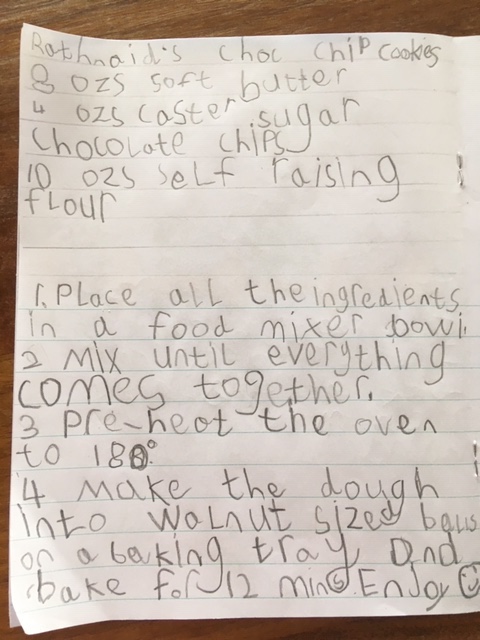 Rathnaid's choc chip cookies
8 ozs soft butter
4 ozs caster sugar
Chocolate chips
10 ozs self raising
flour
1. Place all the ingredients
in a food mixer bowl.
2 Mix until everything
comes together.
3 Pre-heat the oven
to 180°
4 Make the dough
into walnut sized balls
on a baking tray and
bake for 12 mins. Enjoy ☺